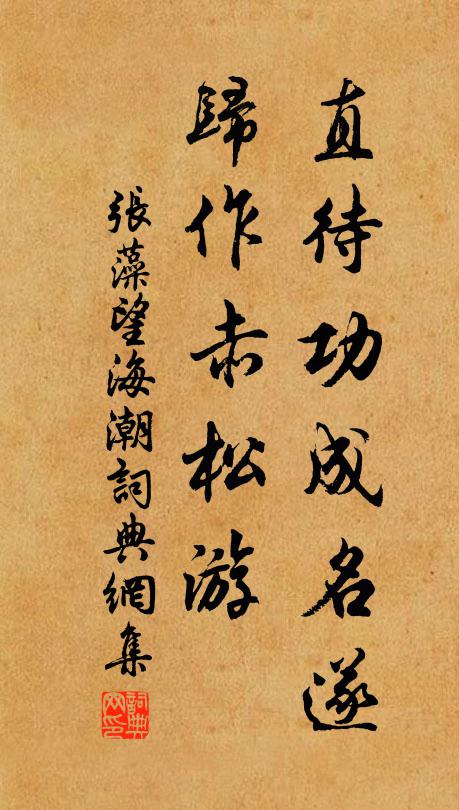 直待功成名遂
歸作赤松游
張藻望海潮詞典網集
詞典
网印